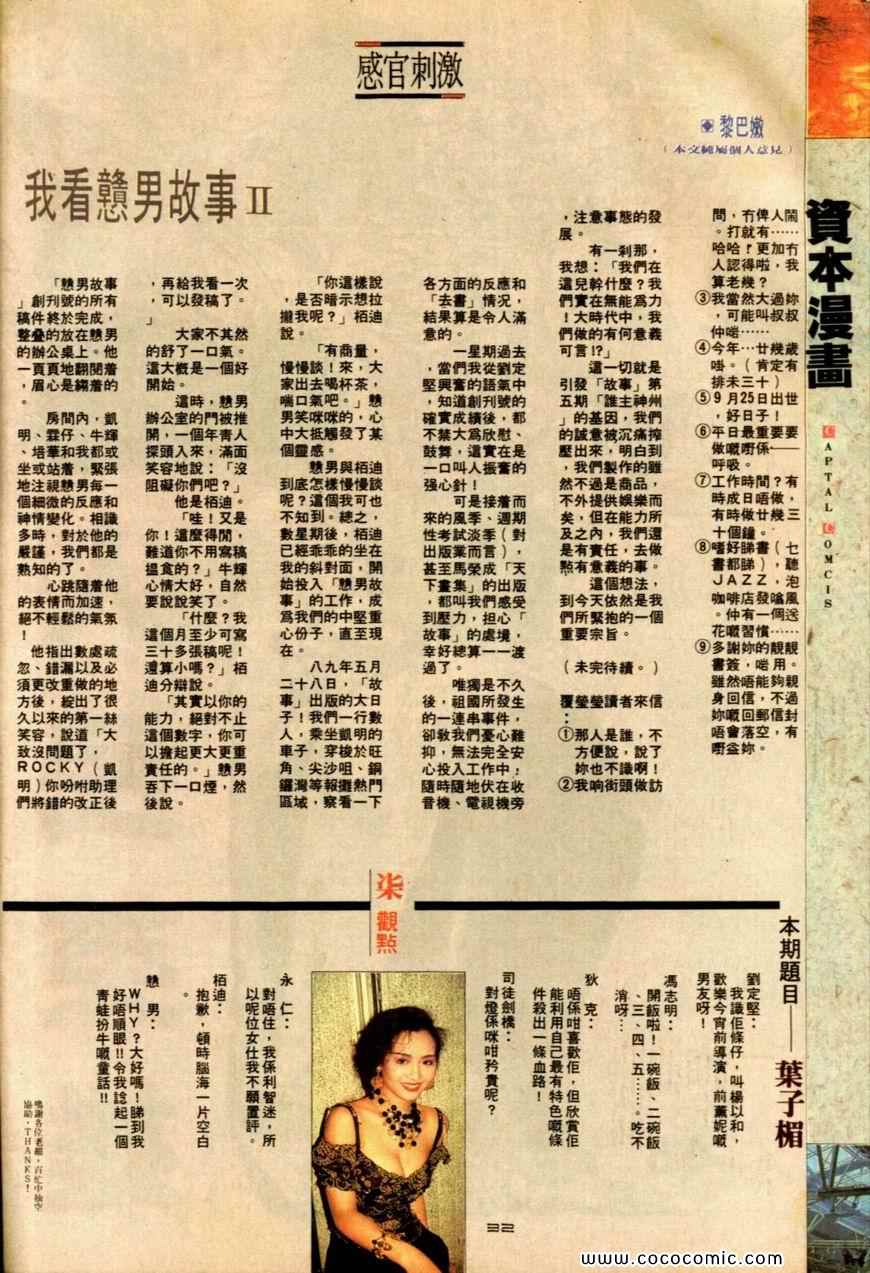 感官刺激
黎巴嫩
（本文純屬個人意見）
我看戇男故事 II
「戇男故事
」創刊號的所有
稿件終於完成，
整疊的放在戇男
的辦公桌上。他
一頁頁地翻閱着
，眉心是縐着的
。
房間內，凱
明、霖仔、牛輝
、培華和我都或
坐或站着，緊張
地注視戇男每一
個細微的反應和
神情變化。相識
多時，對於他的
嚴謹，我們都是
熟知的了。
心跳隨着他
的表情而加速，
絕不輕鬆的氣氛
！
他指出數處疏
忽、錯漏以及必
須更改重做的地
方後，綻出了很
久以來的第一絲
笑容，說道「大
致沒問題了，
ROCKY（凱
明）你吩咐助理
們將錯的改正後
，再給我看一次
，可以發稿了。
」
大家不其然
的舒了一口氣。
這大概是一個好
開始。
這時，戇男
辦公室的門被推
開，一個年青人
探頭入來，滿面
笑容地說：「沒
阻礙你們吧？」
他是栢迪。
「哇！又是
你！這麼得閒，
難道你不用寫稿
搵食的？」牛輝
心情大好，自然
要說說笑了。
「什麼？我
這個月至少可寫
三十多張稿呢！
還算小嗎？」栢
迪分辯說。
「其實以你的
能力，絕對不止
這個數字，你可
以擔起更大更重
責任的。」戇男
吞下一口煙，然
後說。
「你這樣說
，是否暗示想拉
攏我呢？」栢迪
說。
「有商量，
慢慢談！來，大
家出去喝杯茶，
喘口氣吧。」戇
男笑咪咪的，心
中大抵觸發了某
個靈感。
戇男與栢迪
到底怎樣慢慢談
呢？這個我可也
不知到。總之，
數星期後，栢迪
已經乖乖的坐在
我的斜對面，開
始投入「戇男故
事」的工作，成
為我們的中堅重
心份子，直至現
在。
八九年五月
二十八日，「故
事」出版的大日
子！我們一行數
人，乘坐凱明的
車子，穿梭於旺
角、尖沙咀、銅
鑼灣等報攤熱門
區域，察看一下
各方面的反應和
「去書」情況，
結果算是令人滿
意的。
一星期過去
，當們我從劉定
堅興奮的語氣中
，知道創刊號的
確實成績後，都
不禁大為欣慰、
鼓舞，這實在是
一口叫人振奮的
強心針！
可是接着而
來的風季、週期
性考試淡季（對
出版業而言），
甚至馬榮成「天
下畫集」的出版
，都叫我們感受
到壓力，担心「
故事」的處境，
幸好總算一一渡
過了。
唯獨是不久
後，祖國所發生
的一連串事件，
卻敎我們憂心難
抑，無法完全安
心投入工作中；
隨時隨地伏在收
音機、電視機旁
，注意事態的發
展。
有一刹那，
我想：「我們在
這兒幹什麼？我
們實在無能爲力
！大時代中，我
們做的有何意義
可言!?」
這一切就是
引發「故事」第
五期「誰主神州
」的基因，我們
的誠意被沉痛搾
壓出來，明白到
，我們製作的雖
然不過是商品，
不外提供娛樂而
矣，但在能力所
及之內，我們還
是有責任，去做
點有意義的事。
這個想法，
到今天依然是我
們所緊抱的一個
重要宗旨。
（未完待續。）
覆瑩瑩讀者來信
：
①那人是誰，不
方便說，說了
妳也不識啊！
②我响街頭做訪
問，冇俾人鬧
。打就有……
哈哈！更加冇
人認得啦，我
算老幾？
③我當然大過妳
，可能叫叔叔
仲啱……
④今年…廿幾歲
啩。（肯定有
排未三十）
⑤9月25日出世
，好日子！
⑥平日最重要要
做嘅嘢係——
呼吸。
⑦工作時間？有
時成日唔做，
有時做廿幾三
十個鐘。
⑧嗜好睇書（乜
書都睇），聽
JAZZ，泡
咖啡店發噏風
。仲有一個送
花嘅習慣……
⑨多謝妳的靚靚
書簽，啱用。
雖然唔能夠親
身回信，不過
妳嘅回郵信封
唔會落空，有
嘢益妳。
資本漫畫
CAPTAL COMCIS
柒觀點
本期題目——葉子楣
劉定堅：
我識佢條仔，叫楊以和，
歡樂今宵前導演，前薰妮嘅
男友呀！
馮志明：
開飯啦！一碗飯、二碗飯
、三、四、五……。吃不
消呀…
狄克：
唔係咁喜歡佢，但欣賞佢
能利用自己最有特色嘅條
件殺出一條血路！
司徒劍橋：
對燈係咪咁矜貴呢？
永仁：
對唔住，我係利智迷，所
以呢位女仕我不願置評。
栢迪：
抱歉，頓時腦海一片空白
。
戇男：
WHY？大好嗎！睇到我
好唔順眼!!令我諗起一個
青蛙扮牛嘅童話!!
鳴謝各位老細，百忙中抽空
協助，THANKS！
32
www.cococomic.com